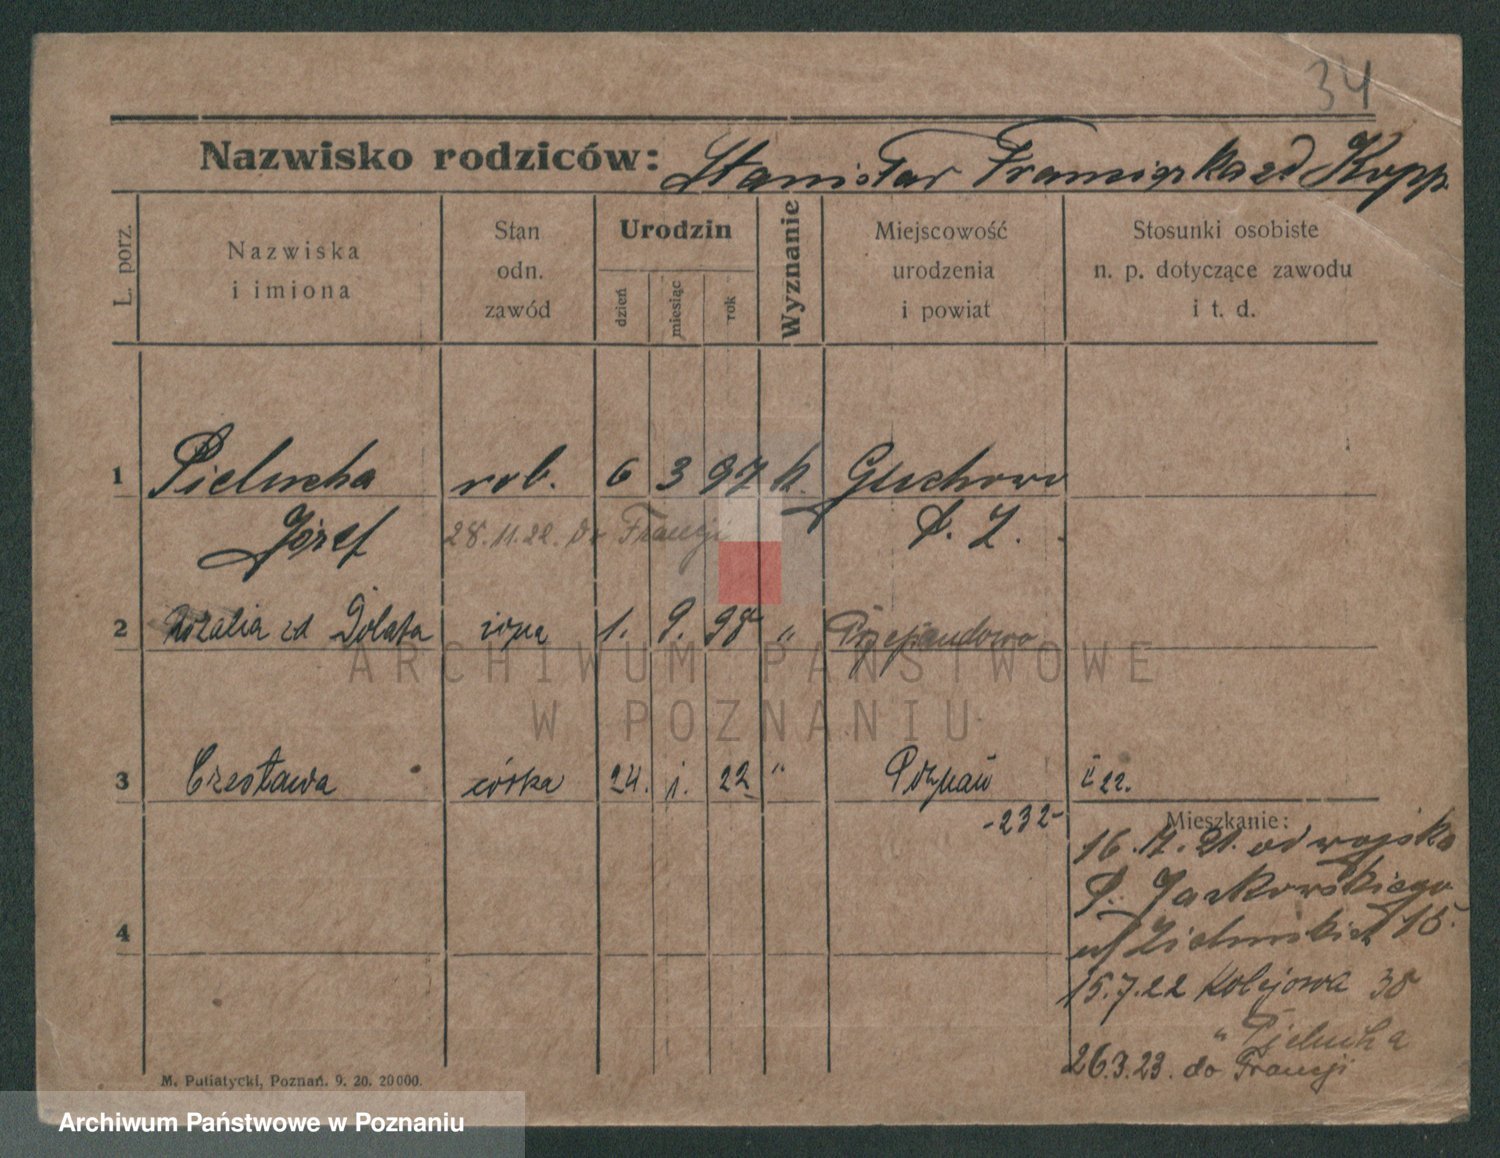 34
Nazwisko rodziców: Stanisław Franciszka zd Kopp.
L. porz.
Nazwiska
i imiona
Stan
odn.
zawód
Urodzin
dzień
miesiąc
rok
Wyznanie
Miejscowość
urodzenia
i powiat
Stosunki osobiste
n. p. dotyczące zawodu
i t. d.
1 Pielucha rob. 6 3 97 k. Głuchowo
Józef 28.11.22. do Francji
2 Rozalia zd Dolata żona 1. 9. 98 "
3 Czesława córka 24. 1. 22 " Poznań 22.
-232-
Mieszkanie:
od wojska
P. Jaskowskiego
15.
4
15.7.22 Kolejowa 38
" Pielucha
26.3.23. do Francji
M. Putiatycki, Poznań. 9. 20. 20000.
ARCHIWUM PAŃSTWOWE
W POZNANIU
Archiwum Państwowe w Poznaniu